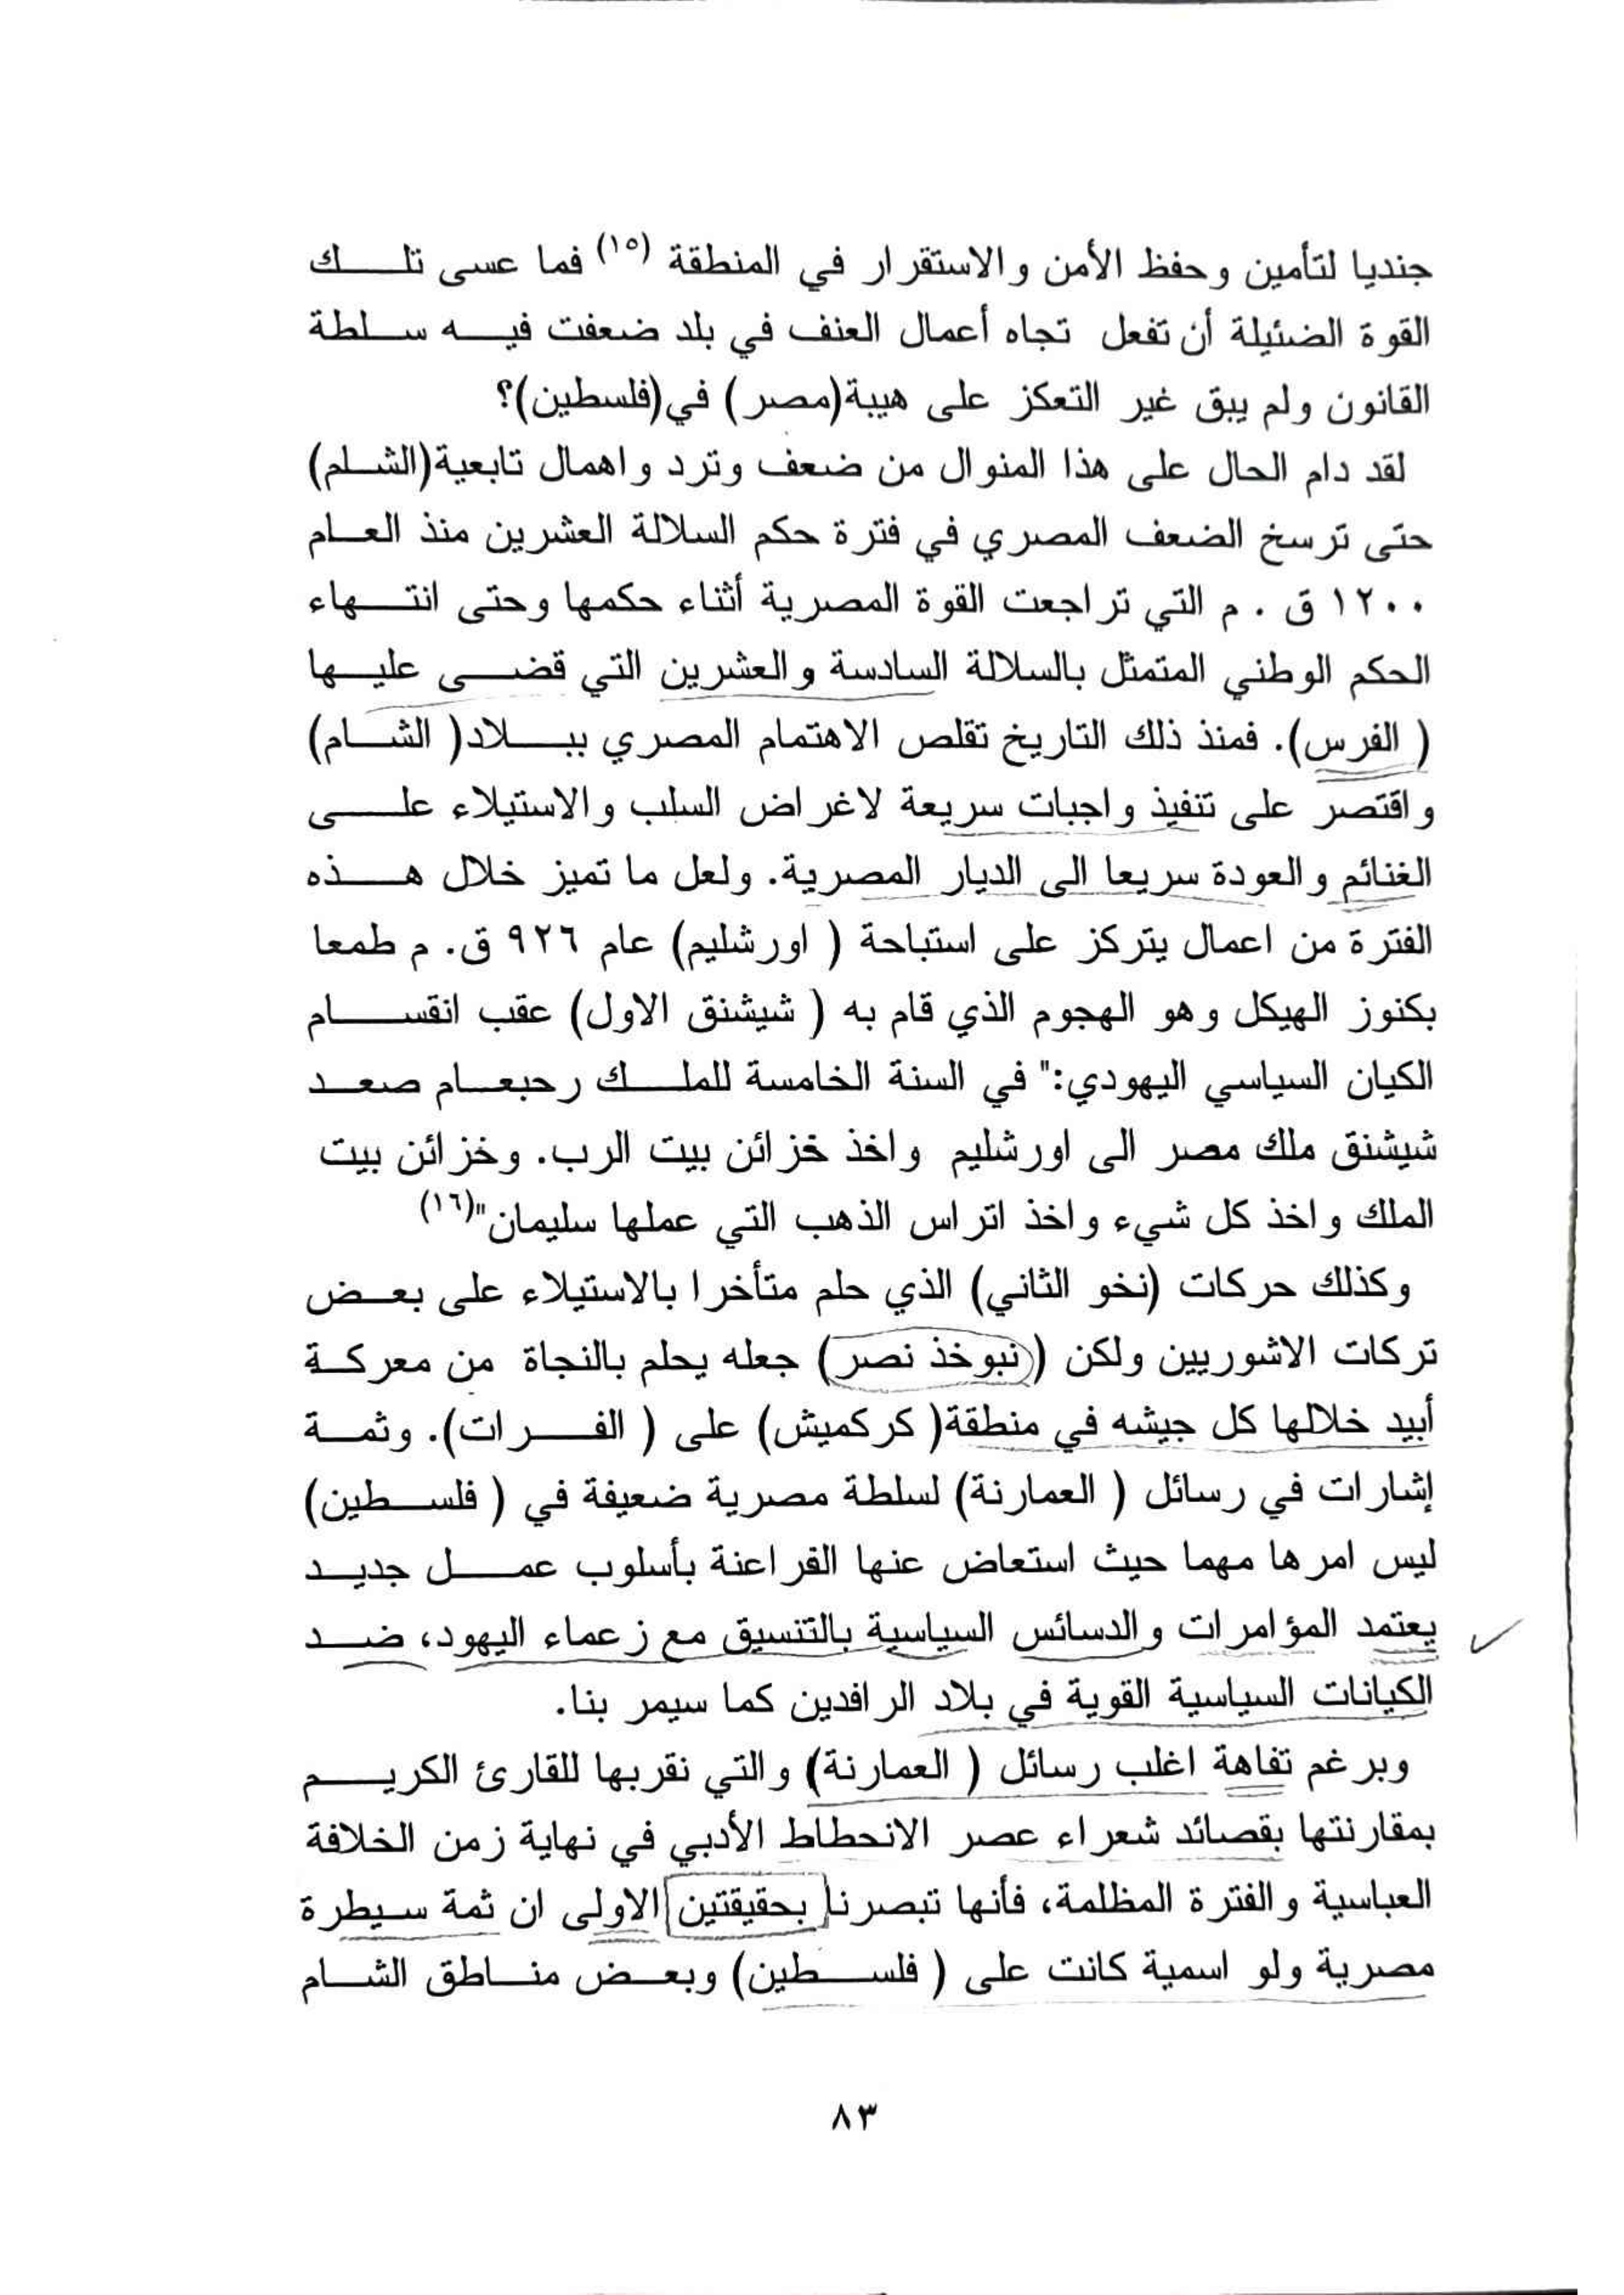 جنديا لتأمين وحفظ الأمن والاستقرار في المنطقة (١٥) فما عسى تلك
القوة الضئيلة أن تفعل تجاه أعمال العنف في بلد ضعفت فيه سلطة
القانون ولم يبق غير التعكز على هيبة(مصر) في(فلسطين)؟
لقد دام الحال على هذا المنوال من ضعف وترد واهمال تابعية(الشام)
حتى ترسخ الضعف المصري في فترة حكم السلالة العشرين منذ العام
١٢٠٠ ق . م التي تراجعت القوة المصرية أثناء حكمها وحتى انتهاء
الحكم الوطني المتمثل بالسلالة السادسة والعشرين التي قضى عليها
( الفرس). فمنذ ذلك التاريخ تقلص الاهتمام المصري ببلاد( الشام)
واقتصر على تنفيذ واجبات سريعة لاغراض السلب والاستيلاء على
الغنائم والعودة سريعا الى الديار المصرية. ولعل ما تميز خلال هذه
الفترة من اعمال يتركز على استباحة ( اورشليم) عام ٩٢٦ ق. م طمعا
بكنوز الهيكل وهو الهجوم الذي قام به ( شيشنق الاول) عقب انقسام
الكيان السياسي اليهودي:" في السنة الخامسة للملك رحبعام صعد
شيشنق ملك مصر الى اورشليم واخذ خزائن بيت الرب. وخزائن بيت
الملك واخذ كل شيء واخذ اتراس الذهب التي عملها سليمان"(١٦)
وكذلك حركات (نخو الثاني) الذي حلم متأخرا بالاستيلاء على بعض
تركات الاشوريين ولكن (نبوخذ نصر) جعله يحلم بالنجاة من معركة
أبيد خلالها كل جيشه في منطقة( كركميش) على ( الفرات). وثمة
إشارات في رسائل ( العمارنة) لسلطة مصرية ضعيفة في ( فلسطين)
ليس امرها مهما حيث استعاض عنها الفراعنة بأسلوب عمل جديد
يعتمد المؤامرات والدسائس السياسية بالتنسيق مع زعماء اليهود، ضد
الكيانات السياسية القوية في بلاد الرافدين كما سيمر بنا.
وبرغم تفاهة اغلب رسائل ( العمارنة) والتي نقربها للقارئ الكريم
بمقارنتها بقصائد شعراء عصر الانحطاط الأدبي في نهاية زمن الخلافة
العباسية والفترة المظلمة، فأنها تبصرنا بحقيقتين الاولى ان ثمة سيطرة
مصرية ولو اسمية كانت على ( فلسطين) وبعض مناطق الشام
٨٣